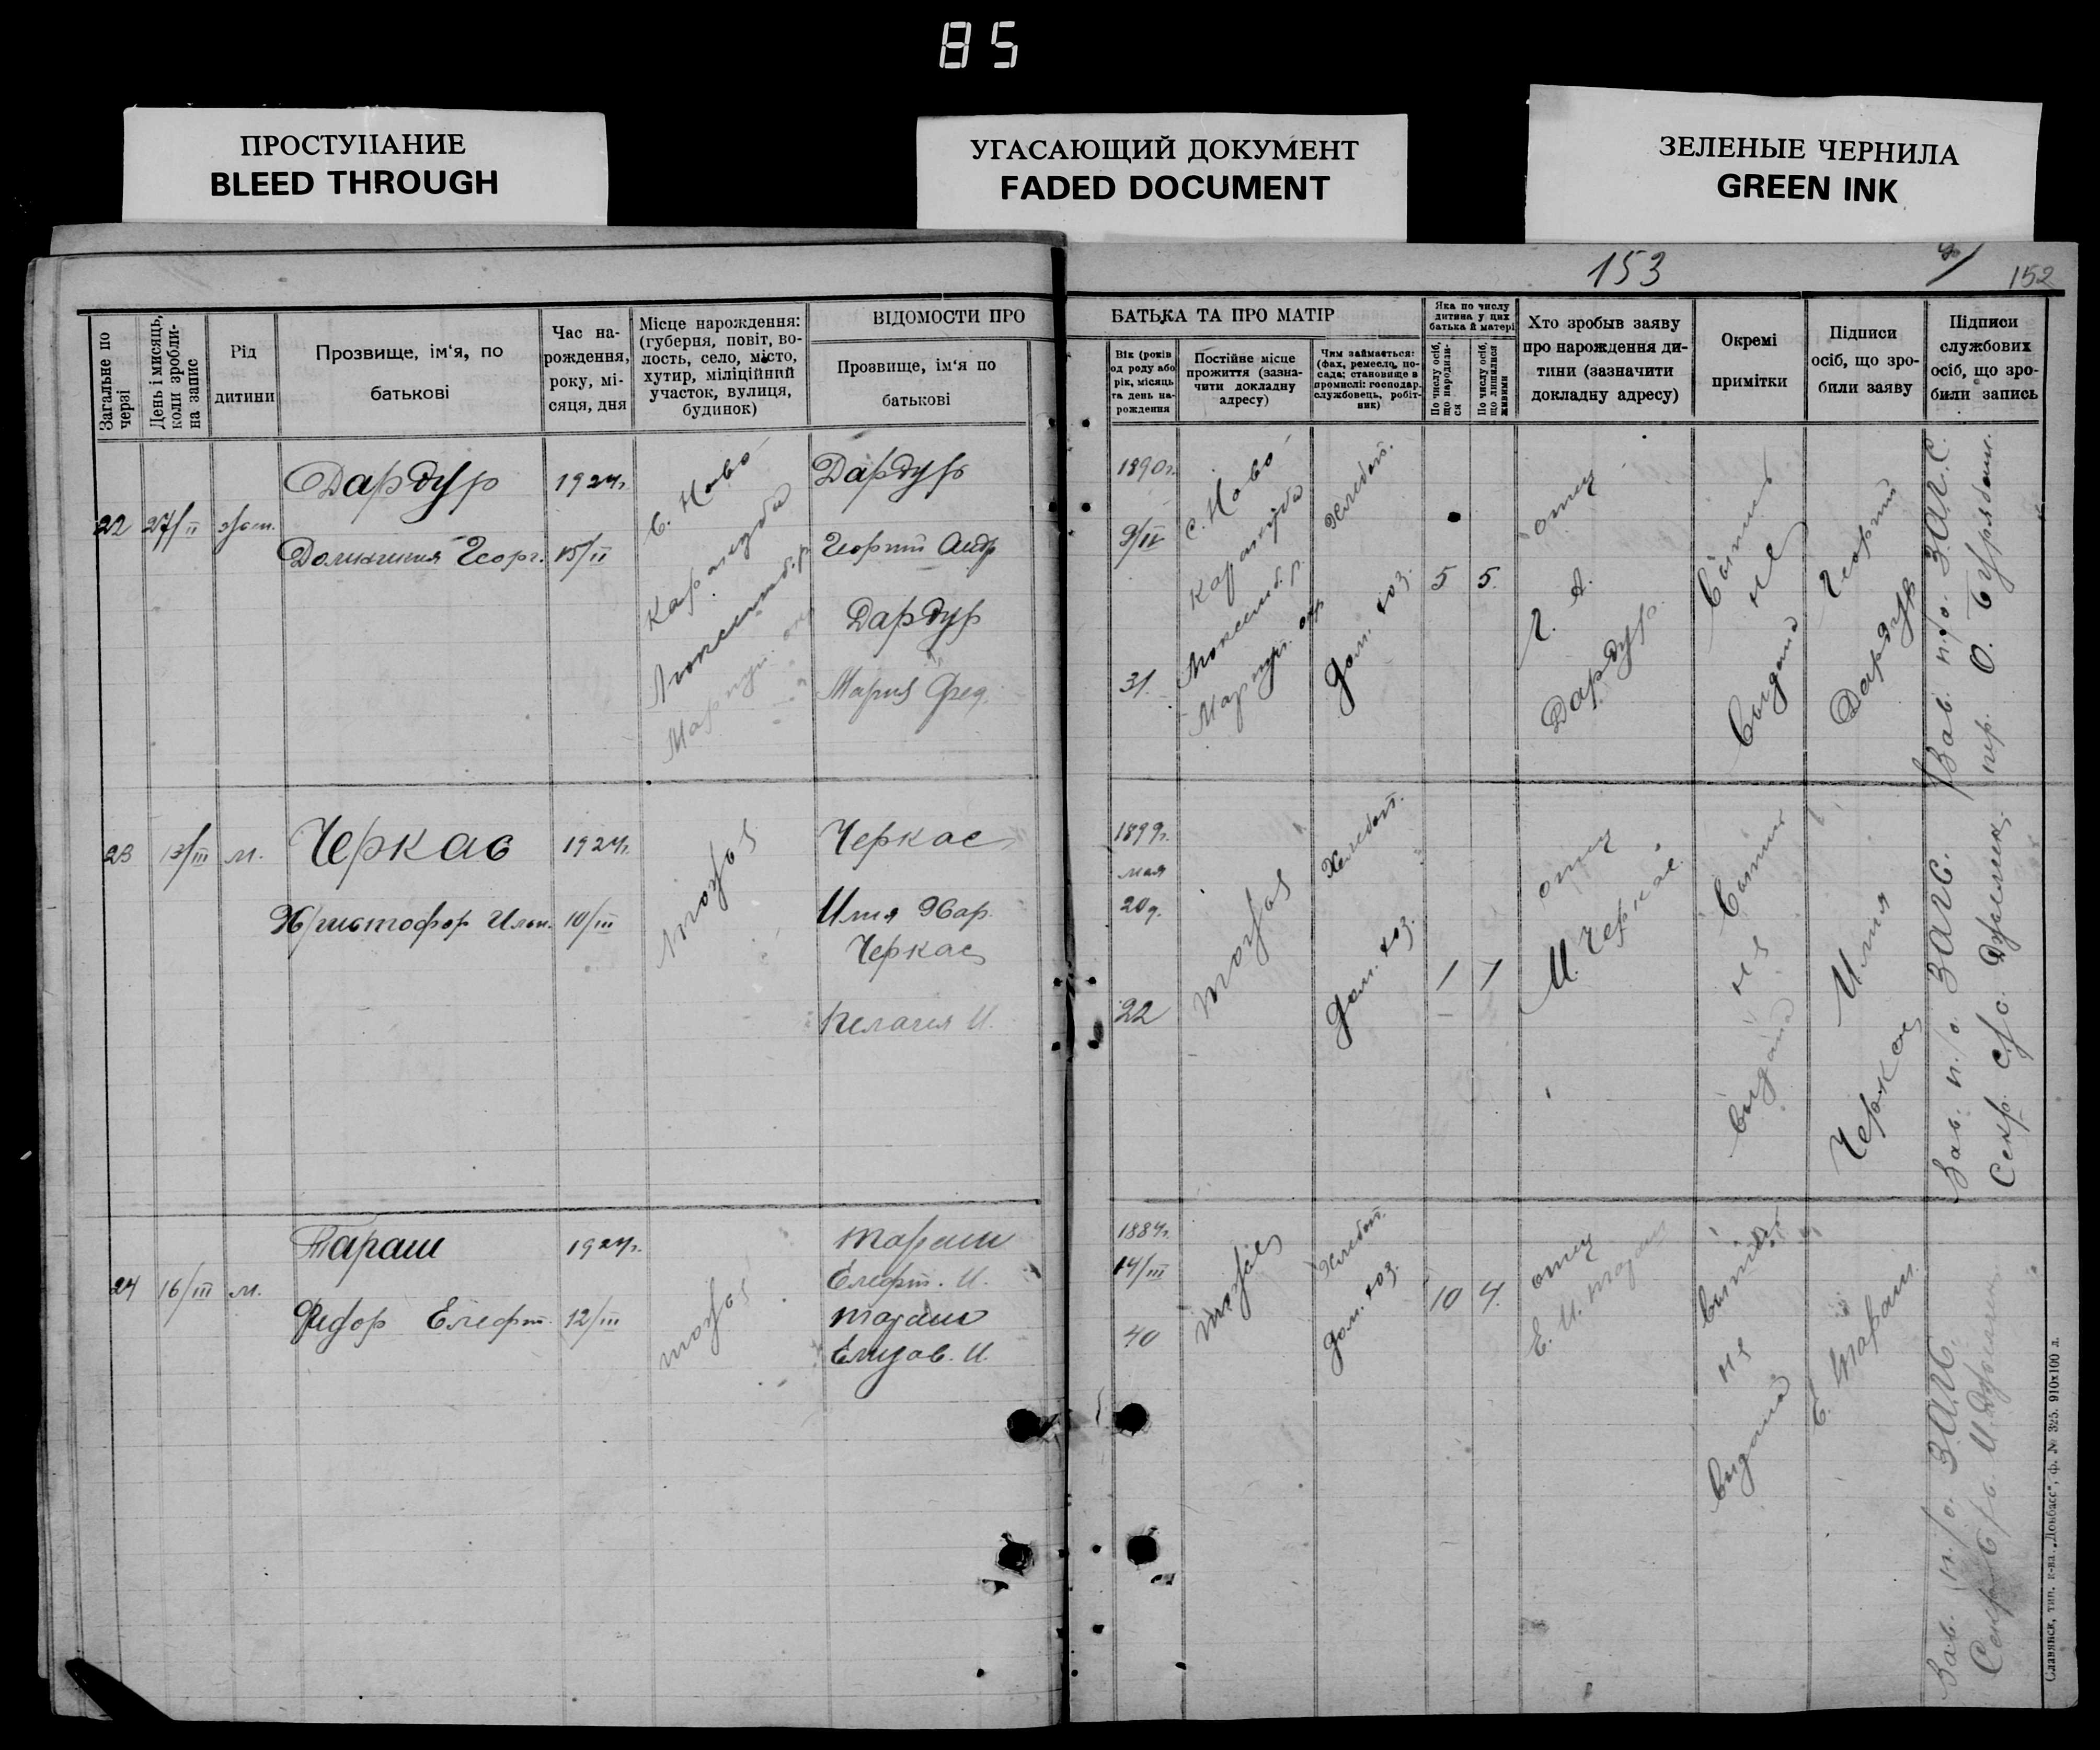 85
ПРОСТУПАНИЕ
BLEED THROUGH
УГАСАЮЩИЙ ДОКУМЕНТ
FADED DOCUMENT
ЗЕЛЕНЫЕ ЧЕРНИЛА
GREEN INK
153
152
Загальне по черзі
День і мисяць, коли зробли-на запис
Рід
дитини
Прозвище, ім'я, по
батькові
Час на-
рождення,
року, мі-
сяця, дня
Місце нарождення:
(губерня, повіт, во-
лость, село, місто,
хутир, міліційний
участок, вулиця,
будинок)
ВІДОМОСТИ ПРО
Прозвище, ім'я по
батькові
БАТЬКА ТА ПРО МАТІР
Вік (років
од роду або
рік, місяць
та день на-
рождення
Постійне місце
прожиття (зазна-
чити докладну
адресу)
Чим займається:
(фах, ремесло, по-
сада; становище в
промислі: господар,
службовець, робіт-
ник)
Яка по числу
дитина у цих
батька й матері
По числу осіб,
що народили-
ся
По числу осіб,
що лишилися
живими
Хто зробыв заяву
про нарождення ди-
тини (зазначити
докладну адресу)
Окремі
примітки
Підписи
осіб, що зро-
били заяву
Підписи
службових
осіб, що зро-
били запись
22
27/II
Дардур
Георг.
1924г.
15/II
с. Ново
Каракуба
Мариуп. окр
Дардур
Георгий Андр
Дардур
Мария Фед.
1890г.
9/IV
31.
с. Ново
Каракуба
Мариуп. окр
Хлебоп.
дом. хоз.
5
5.
отец
Г. А.
Дардур.
не
выдана
Георгий
Дардур
Зав. п/о. З.А.Г.С.
23
13/III
м.
Черкас
Христофор Ильи.
1924г.
10/III
тоже
Черкас
Илия Хар.
Черкас
Пелагия И.
1899г.
мая
20д.
22
тоже
Хлебоп.
дом. хоз.
1
1
отец
И. Черкас.
не
выдана
Илия
Черкас
Зав. п/о. ЗАГС.
24
16/III
м.
Тараш
Федор Елефт.
1924г.
12/III
тоже
Тараш
Елефт. И.
Тараш
Елизав. И.
1884г.
14/III
40
тоже
Хлебоп.
дом. хоз.
10
4.
отец
Е. И. Тараш
не
выдана
Е. Тараш.
Зав. п/о. ЗАГС.
Славянск, тип. к-ва „Донбасс", ф. № 325. 910x100 л.